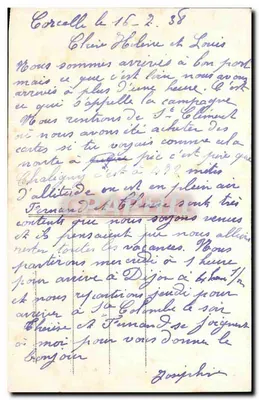 Corcelle le 15-2.38
Chère Hélène et Louis
Nous sommes arrivés à bon port
mais ce que c'est loin nous avons
arrivés à plus d'une heure. C'est
ce qui s'appelle la campagne
Nous rentrons de St Clément
où nous avons été acheter des
cartes si tu voyais comme cela
monte à pic c'est pire que
c'est à metres
d'altitude on est en plein air
Fernand et Thérèse sont très
contents que nous soyons venus
et ils pensaient que nous allions
rester toutes les vacances. Nous
partirons mercredi à 1 heure
pour arrivé à Dijon à 4 heu 1/2
et nous repartirons jeudi pour
arriver à Ste Colombe le soir
Thérèse et Fernand se joignent
à moi pour vous donne le
bonjour
Josephine